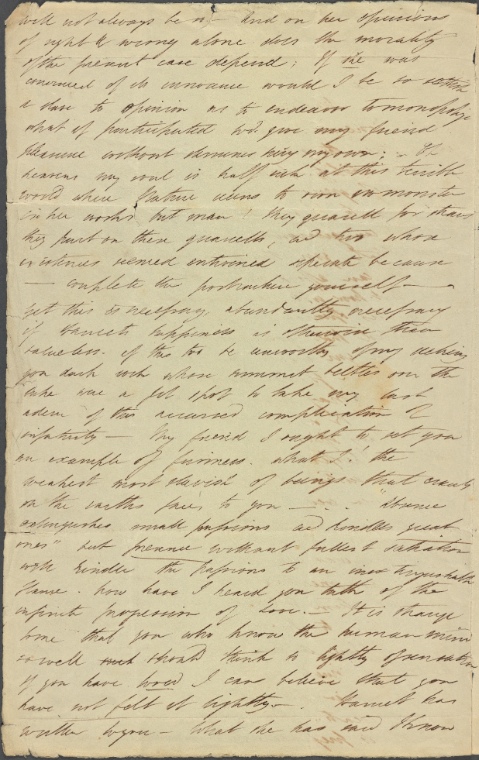 will not always be so — And on her opinions
of right & wrong alone does the morality
of the present case depend: If she was
convinced of its innocence would I be so
a slave to opinion as to endeavor to monopolize
what if participated wd. give my friend
pleasure without diminishing my own; — Oh
heavens my soul is half sick at this terrible
world where Nature seems to own no monster
in her works but man! They quarrell for straws
they part on these quarrells, and two whose
existences seemed entwined separate because
— complete the portraiture yourself —
yet this is necessary, absolutely necessary
if Harriets happiness is otherwise than
valueless. if this too be unworthy of my
yon dark rock whose summit beetles over the
lake was a fit spot to take my last
adieu of this accursed complication of
— My friend I ought to set you
an example of firmness. what I! the
weakest most slavish of beings that crawls
on the earths face to you — .. "Absence
extinguishes small passions and kindles great
ones" but presence without fullest satiation
will kindle the passions to an inextinguishable
flame. how have I heard you talk of the
infinite progression of Love. — It is strange
to me that you who know the human mind
so well should think so lightly of sensation
If you have loved I can believe that you
have not felt it lightly —. Harriet has
written to you — what she has said I know